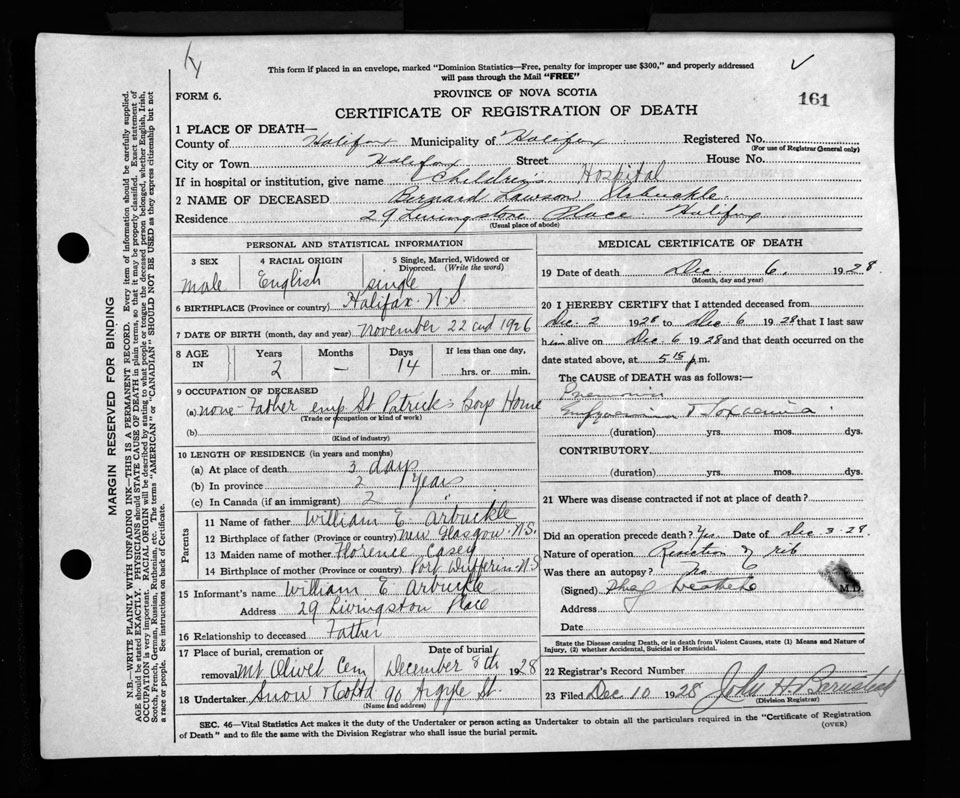 This form if placed in an envelope, marked "Dominion Statistics—Free, penalty for improper use $300," and properly addressed
will pass through the Mail "FREE"
FORM 6.
PROVINCE OF NOVA SCOTIA
161
CERTIFICATE OF REGISTRATION OF DEATH
1 PLACE OF DEATH—
County of Halifax Municipality of Halifax Registered No.
(For use of Registrar General only)
City or Town Halifax Street House No.
If in hospital or institution, give name Children's Hospital
2 NAME OF DECEASED Bernard Lawson Arbuckle
Residence 29 Livingstone Place Halifax
(Usual place of abode)
MARGIN RESERVED FOR BINDING
N.B.—WRITE PLAINLY WITH UNFADING INK—THIS IS A PERMANENT RECORD. Every item of information should be carefully supplied.
AGE should be stated EXACTLY. PHYSICIANS should STATE CAUSE OF DEATH in plain terms, so that it may be properly classified. Exact statement of
OCCUPATION is very important. RACIAL ORIGIN will be described by stating to what people or tongue the deceased person belonged, whether English, Irish,
Scotch, French, German, Russian, Ruthenian, etc. The terms "AMERICAN" or "CANADIAN" SHOULD NOT BE USED as they express citizenship but not
a race or people. See instructions on back of Certificate.
PERSONAL AND STATISTICAL INFORMATION
3 SEX
male
4 RACIAL ORIGIN
English
5 Single, Married, Widowed or
Divorced. (Write the word)
single
6 BIRTHPLACE (Province or country) Halifax N.S.
7 DATE OF BIRTH (month, day and year) November 22nd 1926
8 AGE
IN
Years Months Days If less than one day,
2 — 14 hrs. or min.
9 OCCUPATION OF DECEASED
(a) none - Father emp St Patrick's Boys Home
(Trade or occupation or kind of work)
(b)
(Kind of industry)
10 LENGTH OF RESIDENCE (in years and months)
(a) At place of death 3 days
(b) In province 2 years
(c) In Canada (if an immigrant) 2 "
Parents
11 Name of father William E. Arbuckle
12 Birthplace of father (Province or country) New Glasgow N.S.
13 Maiden name of mother Florence Casey
14 Birthplace of mother (Province or country) Port Dufferin N.S
15 Informant's name William E Arbuckle
Address 29 Livingston Place
16 Relationship to deceased Father
17 Place of burial, cremation or Date of burial
removal Mt Olivet Cem December 8th 1928
18 Undertaker Snow & Co Ltd 90 Argyle St.
(Name and address)
MEDICAL CERTIFICATE OF DEATH
19 Date of death Dec 6. 1928.
(Month, day and year)
20 I HEREBY CERTIFY that I attended deceased from
Dec. 2 1928 to Dec 6 1928 that I last saw
him alive on Dec 6 1928 and that death occurred on the
date stated above, at 5 15 p.m.
The CAUSE OF DEATH was as follows:—
Pneumonia
& Toxaemia
(duration) yrs. mos. dys.
CONTRIBUTORY
(duration) yrs. mos. dys.
21 Where was disease contracted if not at place of death?
Did an operation precede death? Yes. Date of Dec 3-28
Nature of operation Resection of rib
Was there an autopsy? No
(Signed) M.D.
Address
Date
State the Disease causing Death, or in death from Violent Causes, state (1) Means and Nature of
Injury, (2) whether Accidental, Suicidal or Homicidal.
22 Registrar's Record Number
23 Filed Dec 10 1928 John H
(Division Registrar)
SEC. 46—Vital Statistics Act makes it the duty of the Undertaker or person acting as Undertaker to obtain all the particulars required in the "Certificate of Registration
of Death" and to file the same with the Division Registrar who shall issue the burial permit.
(OVER)